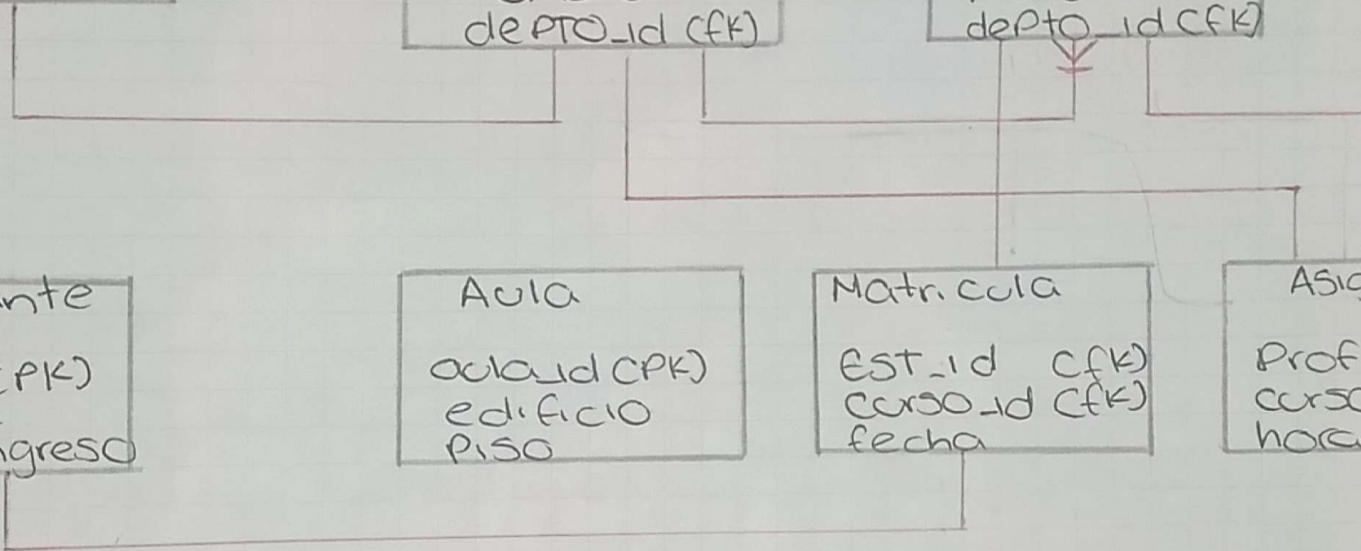 depto_id (fk)
depto_id (fk)
nte
(PK)
ngreso
Aula
aula_id (PK)
edificio
Piso
Matricula
Est_id (fk)
curso_id (fk)
fecha
Asig
Prof
curso
hora